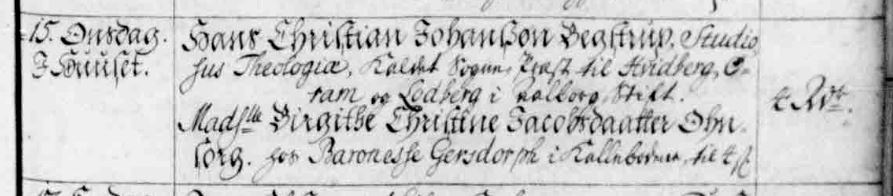 15. Onsdag.
I Huuset.
Hans Christian Johansøn Degstrup, Studio
sus Theologiæ, Kaldet Sogne-Præst til Hvidberg, Ø-
ram og Lodberg i Aalborg Stift.
Madslle Birgithe Christine Jacobsdaatter Ohn-
sorg. hos Baronesse Gersdorph i til
4 Rdr.